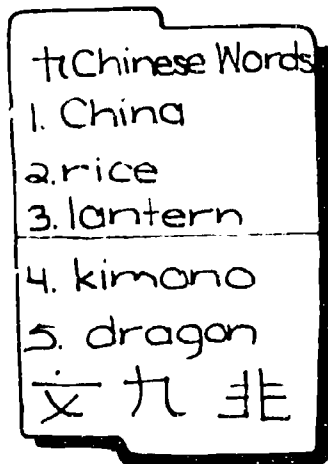 九Chinese Words
1. China
2. rice
3. lantern
4. kimono
5. dragon
文 九 非